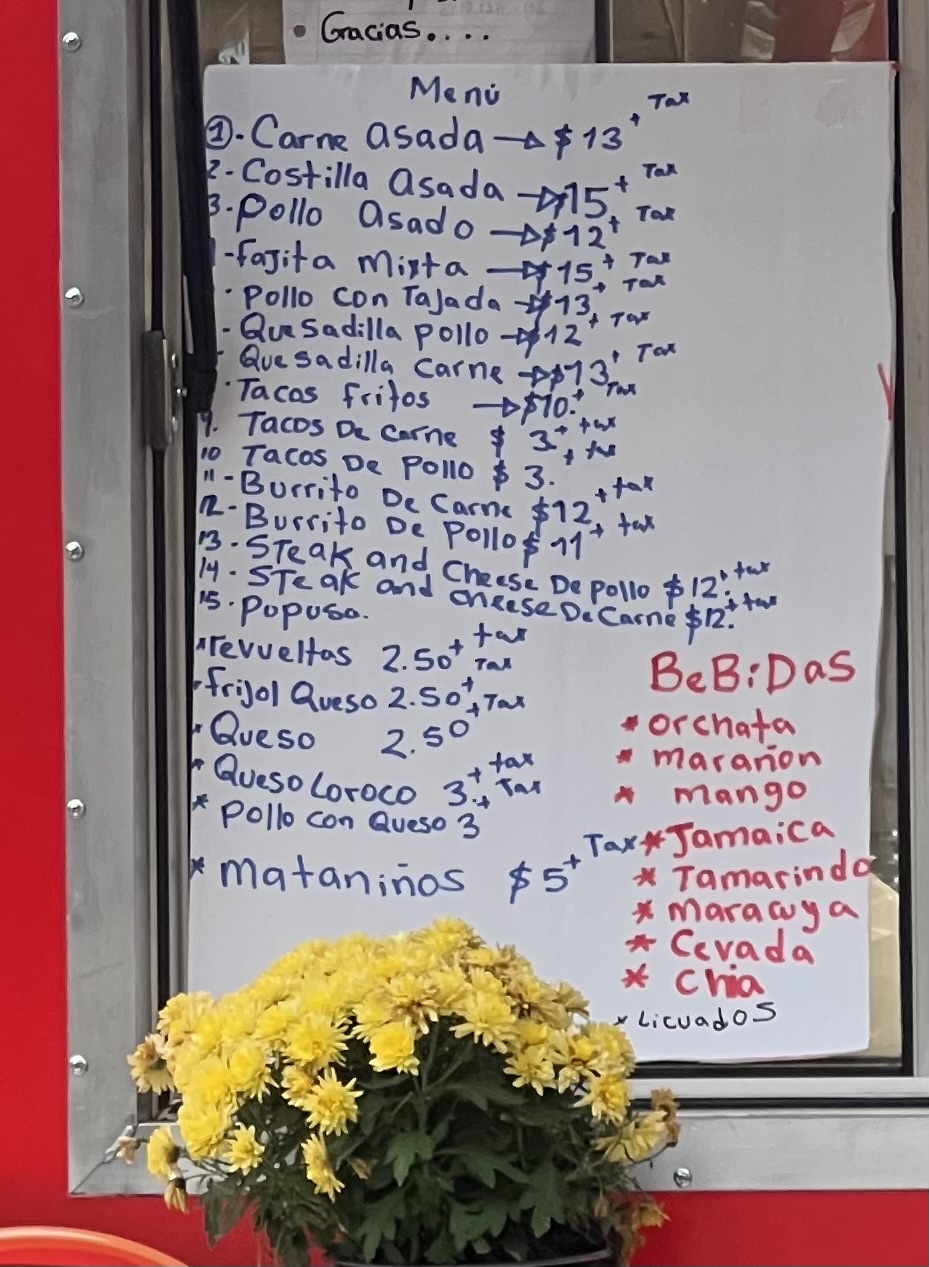 • Gracias....
Menú
①- Carne asada → $13 + Tax
2- Costilla asada → $15 + Tax
3- pollo asado → $12 + Tax
-fajita mixta → $15 + Tax
· pollo con Tajada → $13 + Tax
- Quesadilla pollo → $12 + Tax
- Quesadilla carne → $13 + Tax
· Tacos fritos → $10. + Tax
9. Tacos De carne $ 3. + tax
10 Tacos De pollo $ 3. + tax
11- Burrito De Carne $12 + tax
12- Burrito De Pollo $ 11 + tax
13. STeak and Cheese De pollo $12. + tax
14. STeak and cheese De Carne $12. + tax
15. Popusa.
*revueltas 2.50 + tax
-frijol Queso 2.50 + Tax
* Queso 2.50 + Tax
* Queso Loroco 3. + tax
* Pollo con Queso 3 + Tax
* Mataniños $5 + Tax
BeBiDaS
* orchata
* marañon
* mango
* Jamaica
* Tamarindo
* maracuya
* Cevada
* chia
* LicuadoS